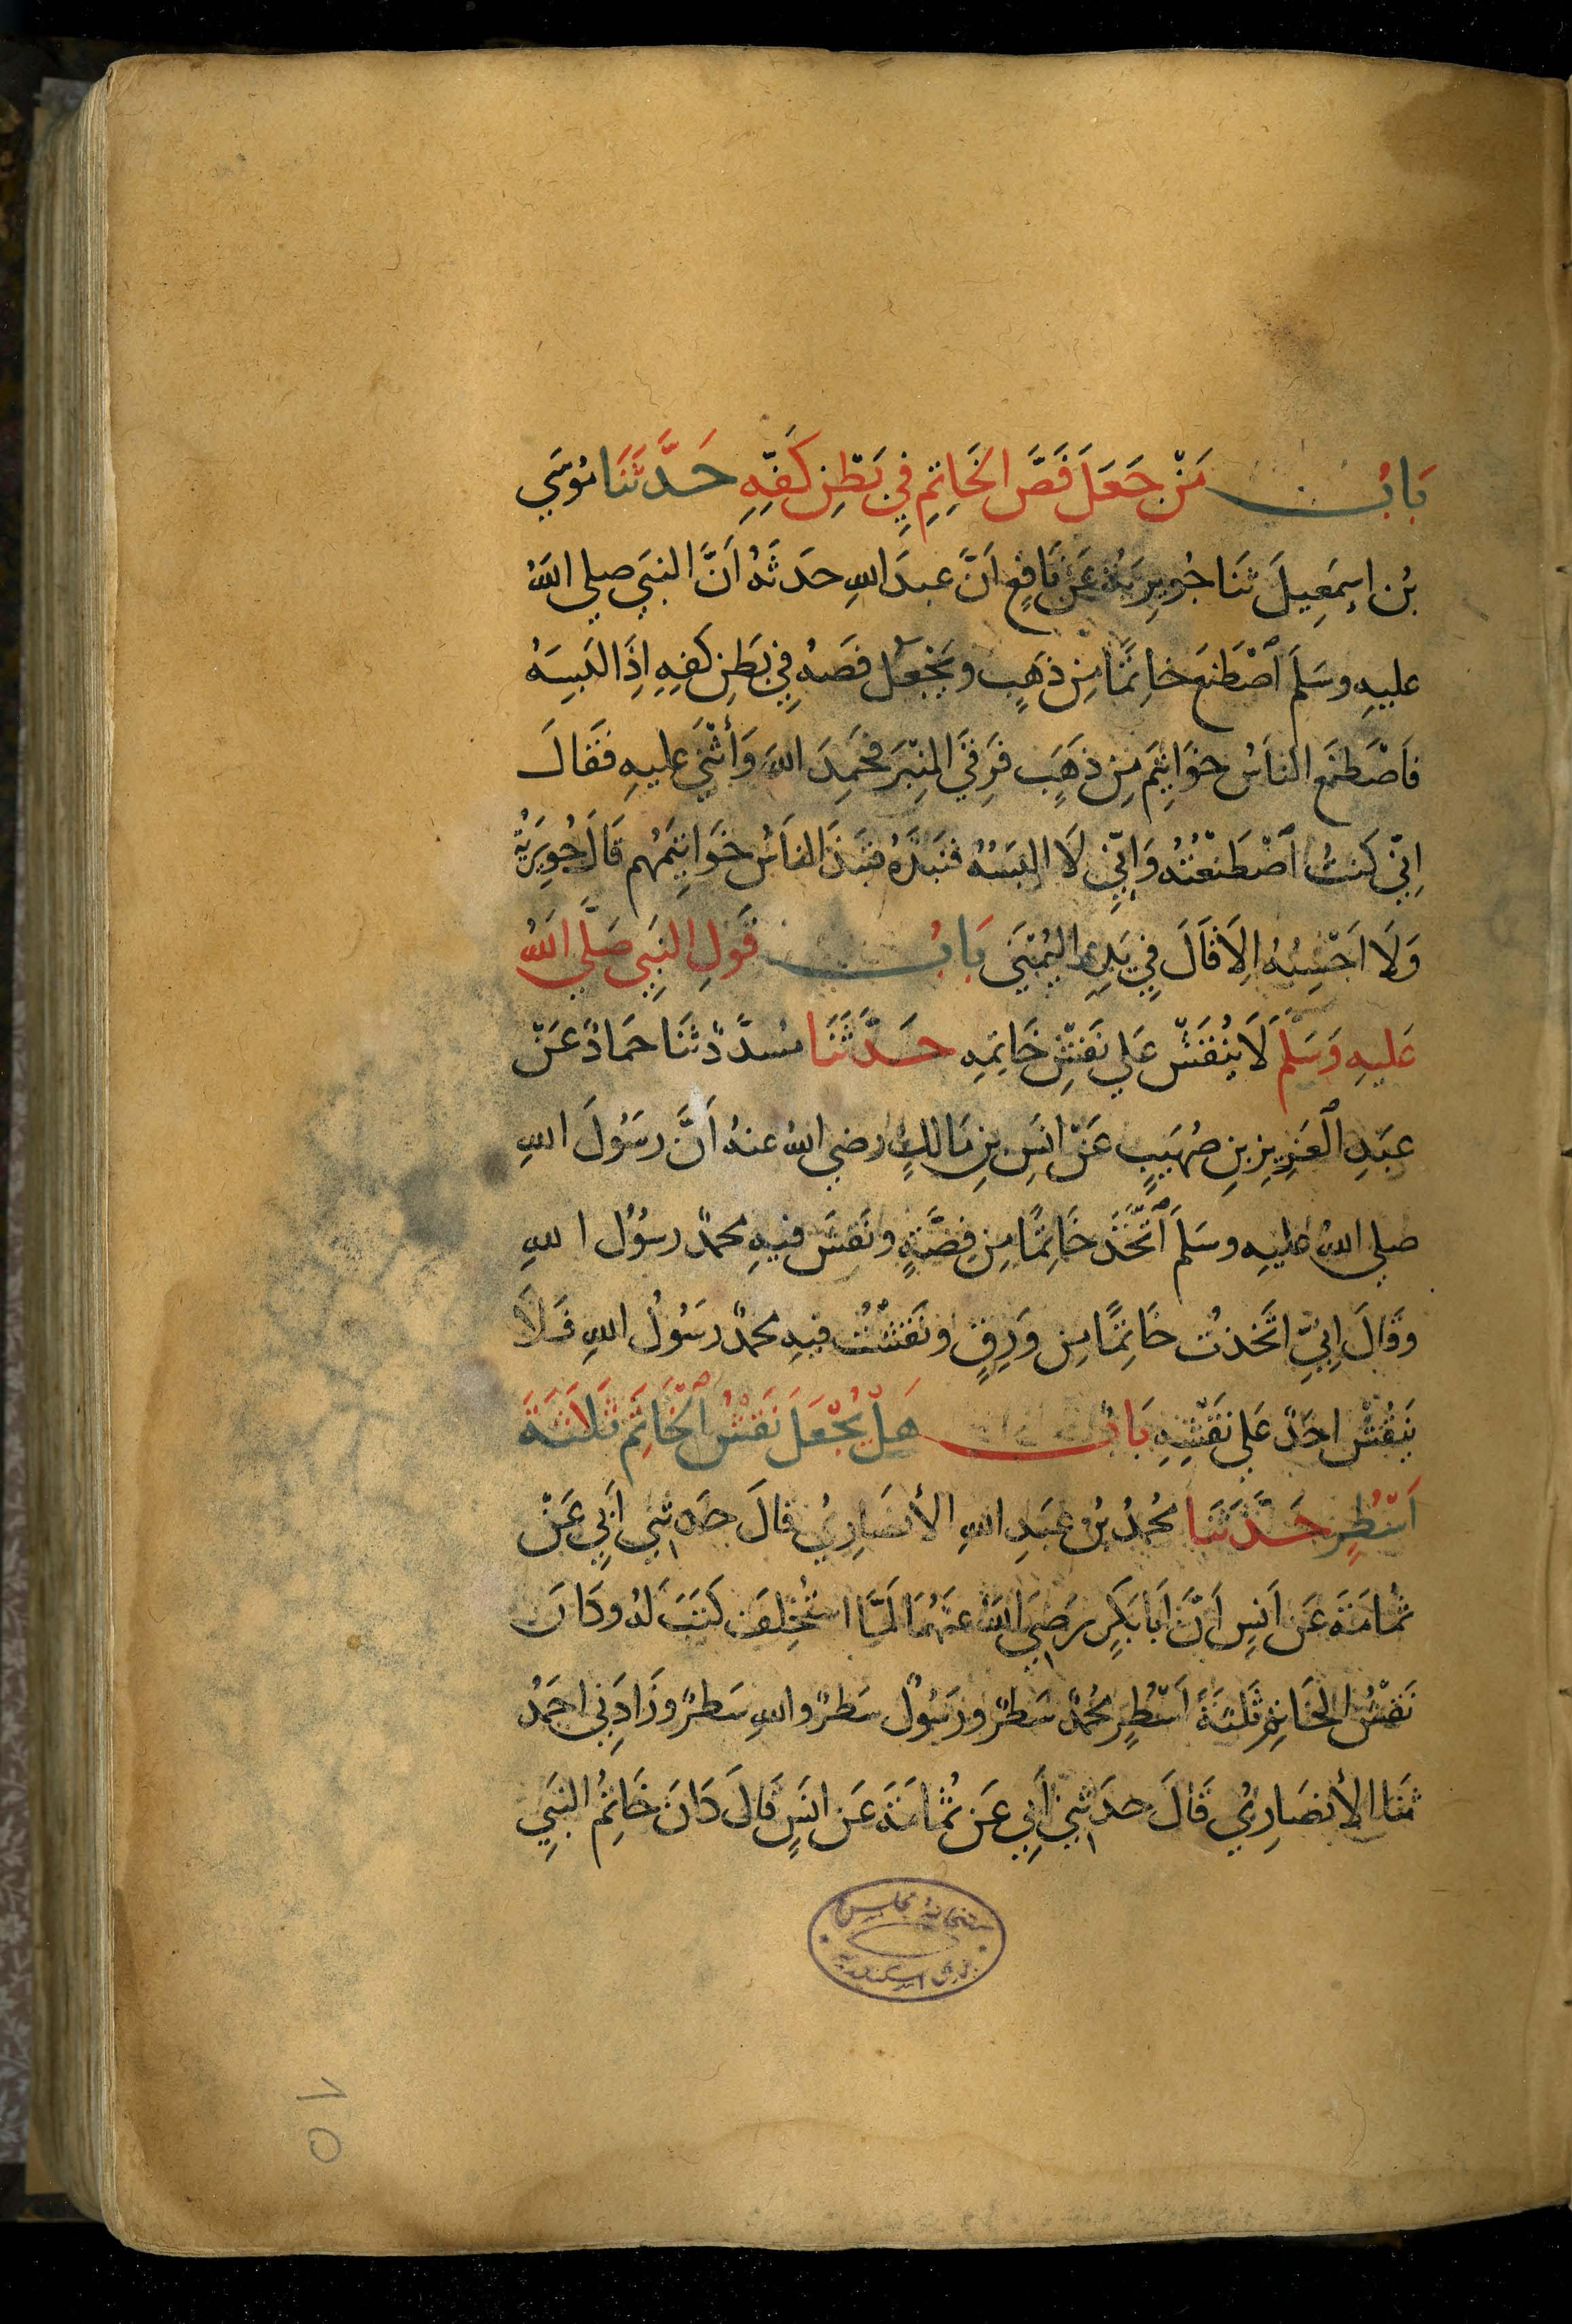 بَابُ مَنْ جَعَلَ فَصَّ الخَاتِمِ فِي بَطْنِ كَفِّهِ حَدَّثَنَا مُوسَي
بْنُ اِسمَعِيلَ ثَنَا جُوَيرِيَةُ عَنْ نَافِعٍ اَنَّ عبدَ اللهِ حدَثَهُ اَنَّ النبَي صلي اللهُ
عليهِ وسَلمَ اصْطَنعَ خاتِمًا مِن ذهَبٍ ويَجْعَل فصَهُ فِي بَطنِ كفِهِ اِذَا لَبسِهُ
فَاصْطَنَع الناسُ خوَاتِيَم مِن ذَهَبٍ فَرقِيَ المِنْبَر فحَمِدَ اللهَ وَأثْنَي عليهِ فَقَالَ
اِنِّي كَنتُ اصْطَنعْتُهُ وَاِنِّي لَا البَسُهُ فنَبَذَهُ فنَبَذَ الناسُ خَوَاتِيمَهُم قَالَ جُوَيرِيَةُ
وَلَا اَحْسِبُهُ اِلَا قَالَ فِي يَدِهِ اليُمْنَي بَابُ قَولِ النبَيِ صَلَّي اللهُ
عَليهِ وَسَلَّم لَا يُنْقَشْ عَلي نَقشِ خَاتِمهِ حَدَّثَنَا مُسدَّدٌ ثنَا حَمادٌ عَنْ
عبَدِ العَزِيزِ بنِ صُهَيبٍ عَنْ انَسِ بنِ مَالكٍ رضي اللهُ عنهُ اَنَّ رسَوُلَ اللهِ
صلي اللهُ عليهِ وسَلمَ اتَّخَذَ خَاتِمًا مِن فِضَّةٍ ونَقشَ فيهِ محمدٌ رسوُل اللهِ
وقَالَ اِنيِّ اتَخذتُ خَاتِمًا مِن وَرِقٍ ونَقشْتُ فيهِ محمدٌ رسَوُلُ اللهِ فَلَا
يَنقُشْ احَدٌ عَلي نقَشِهِ بَابُ هَلْ يُجْعَلَ نَقشُ الخَاتَم ثَلَاثَةَ
اَسْطُرٍ حَدَّثَنَا مُحمدُ بنُ عبَدِ اللهِ الأنصَارِيُ قالَ حدَثنِي اَبِي عَنْ
ثمُامَةَ عَن اَنسِ اَنَّ ابَا بَكرٍ رضَيِ اللهُ عنَهُمَا لمَّا استُخْلِفَ كَتبَ لَهُ وكَانَ
نَقْشُ الخَاتِم ثَلثةَ اَسْطُرٍ مُحمدٌ سَطرٌ ورَسُولُ سَطرٌ واللهِ سَطرٌ وزَادَنِي احَمدُ
ثنَا الأنصَارِيُ قَالَ حدَثنِي اَبِي عَن ثُمامَةَ عَن انَسٍ قَالَ كَانَ خَاتِمُ النبَيِ
كتبخانة مجلس
بلدي اسكندرية
10